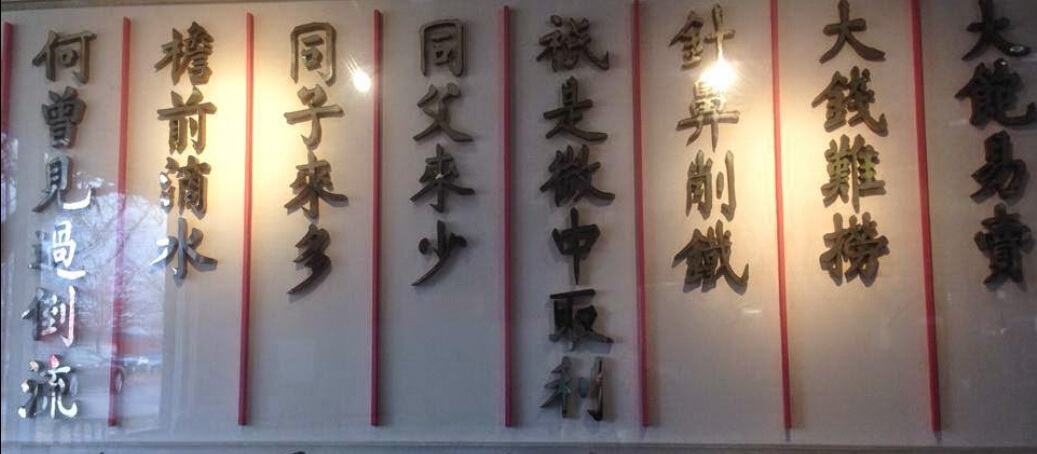 大飽易賣
大錢難撈
針鼻削鐵
祇是微中取利
同父來少
同子來多
檐前滴水
何曾見過倒流